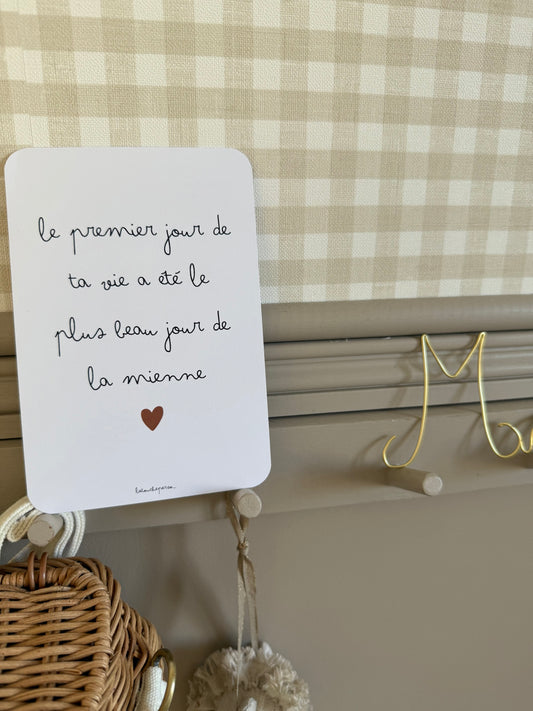 le premier jour de
ta vie a été le
plus beau jour de
la mienne